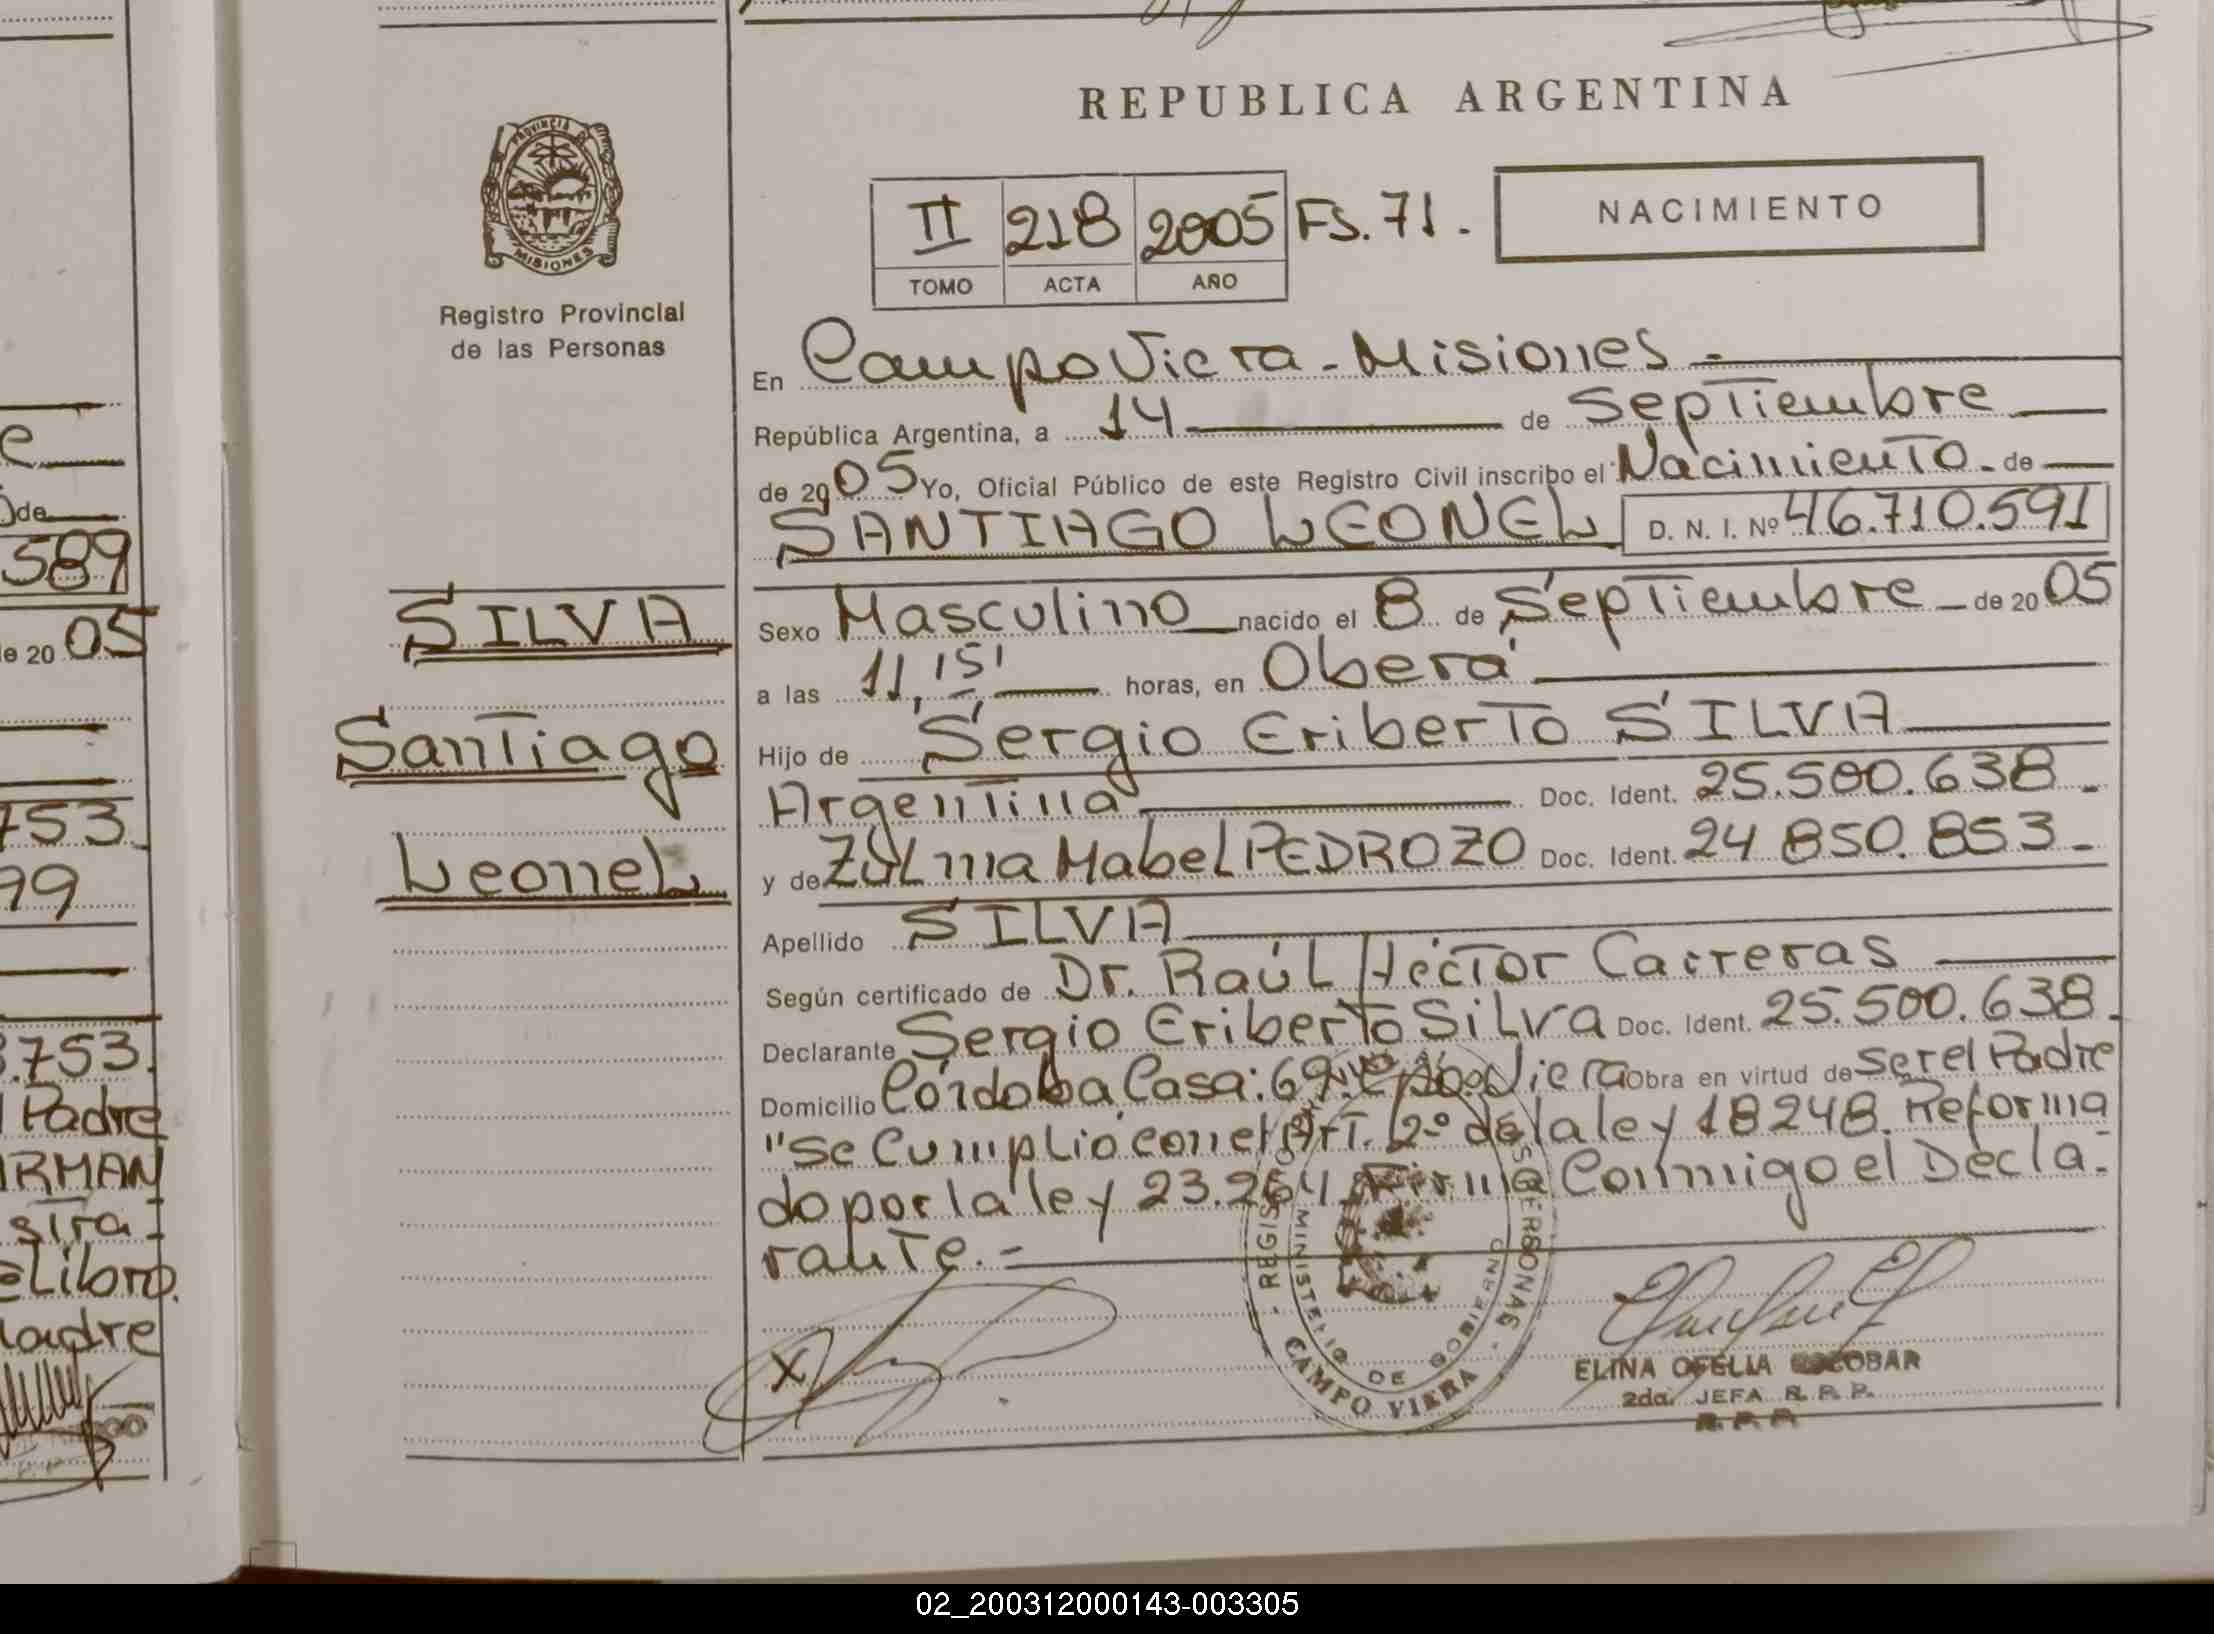 REPUBLICA ARGENTINA
PROVINCIA DE
MISIONES
Registro Provincial
de las Personas
II 218 2005 Fs. 71.
TOMO ACTA AÑO
NACIMIENTO
En Campo Viera - Misiones -
República Argentina, a 14 de Septiembre
de 2005 Yo, Oficial Público de este Registro Civil inscribo el Nacimiento - de
SANTIAGO LEONEL D. N. I. Nº 46.710.591
SILVA
Santiago
Leonel
Sexo Masculino nacido el 8 de Septiembre - de 2005
a las 11,15' horas, en Oberá
Hijo de Sergio Eriberto SILVA
Argentina Doc. Ident. 25.500.638 -
y de Zulma Mabel PEDROZO Doc. Ident. 24 850.853 -
Apellido SILVA
Según certificado de Dr. Raúl Héctor Carreras
Declarante Sergio Eriberto Silva Doc. Ident. 25.500.638.
Domicilio Córdoba Casa: 69. Cpo. Viera Obra en virtud de ser el Padre
"Se Cumplió con el Art. 2º de la ley 18248. Reforma
do por la ley 23.264. Firma Conmigo el Decla-
rante. -
X
REGISTRO PERSONAS
MINISTERIO DE GOBIERNO
CAMPO VIERA
ELINA OFELIA ESCOBAR
2da. JEFA R. P. P.
R. P. P.
e
de
589
de 20 05
753
99
.753.
Padre
ARMAN
sira-
Libro.
adre
02_200312000143-003305